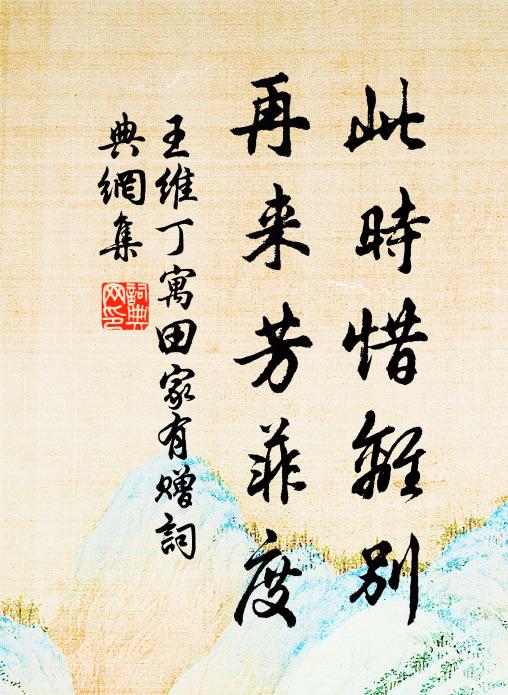 此時惜離別
再来芳菲度
王維丁寓田家有贈詞
典網集
詞典
网印